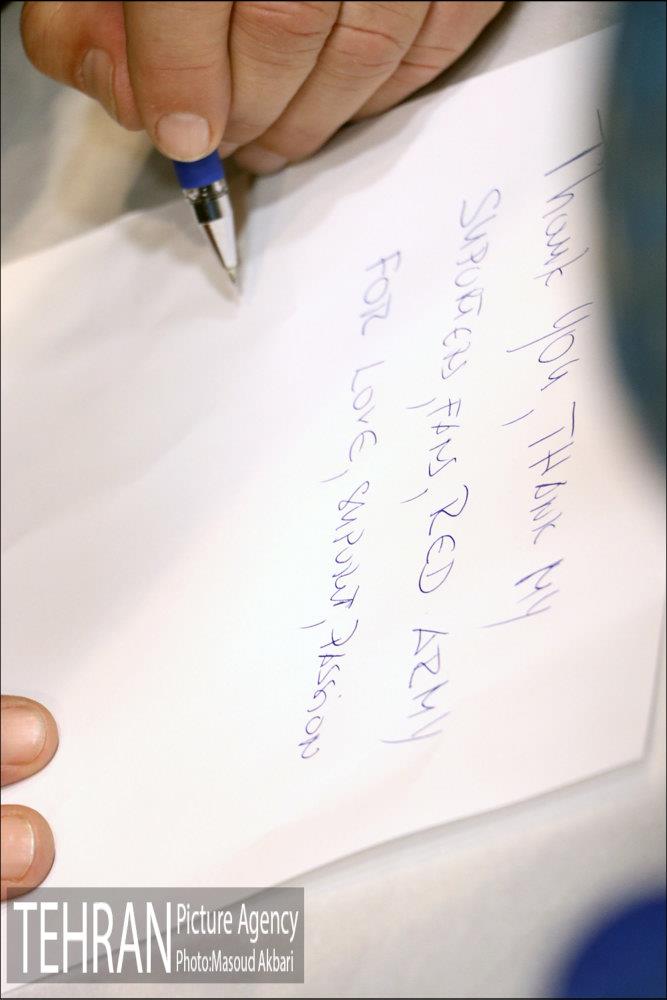 Thank you, THANK MY
SUPORTERS, FANS, RED ARMY
FOR LOVE, SUPORT, PASSION
TEHRAN Picture Agency
Photo:Masoud Akbari